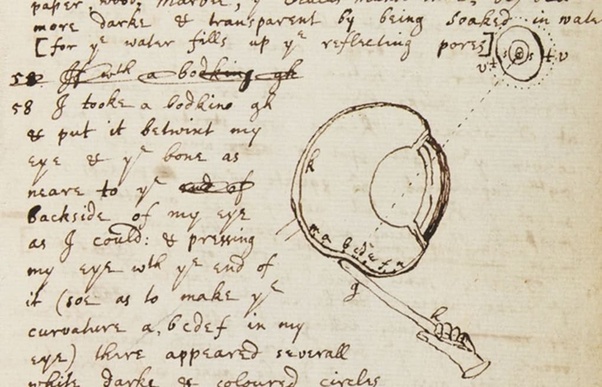 paper, wood, marble, ye
more darke & transparent by being soaked in wate
[for ye water fills up ye reflecting pores]
58 If wth a bodking gh
58 I tooke a bodkine gh
& put it betwixt my
eye & ye bone as
neare to ye end of
backside of my eye
as I could: & pressing
my eye wth ye end of
it (soe as to make ye
curvature a, bcdef in my
eye) there appeared severall
white darke & coloured circles